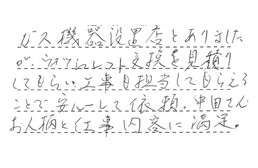 ガス機器設置店とありました
が ウォシュレット交換を見積り
してもらい工事も担当してもらえる
ことで安心して依頼。中田さん
お人柄と仕事内容に満足。